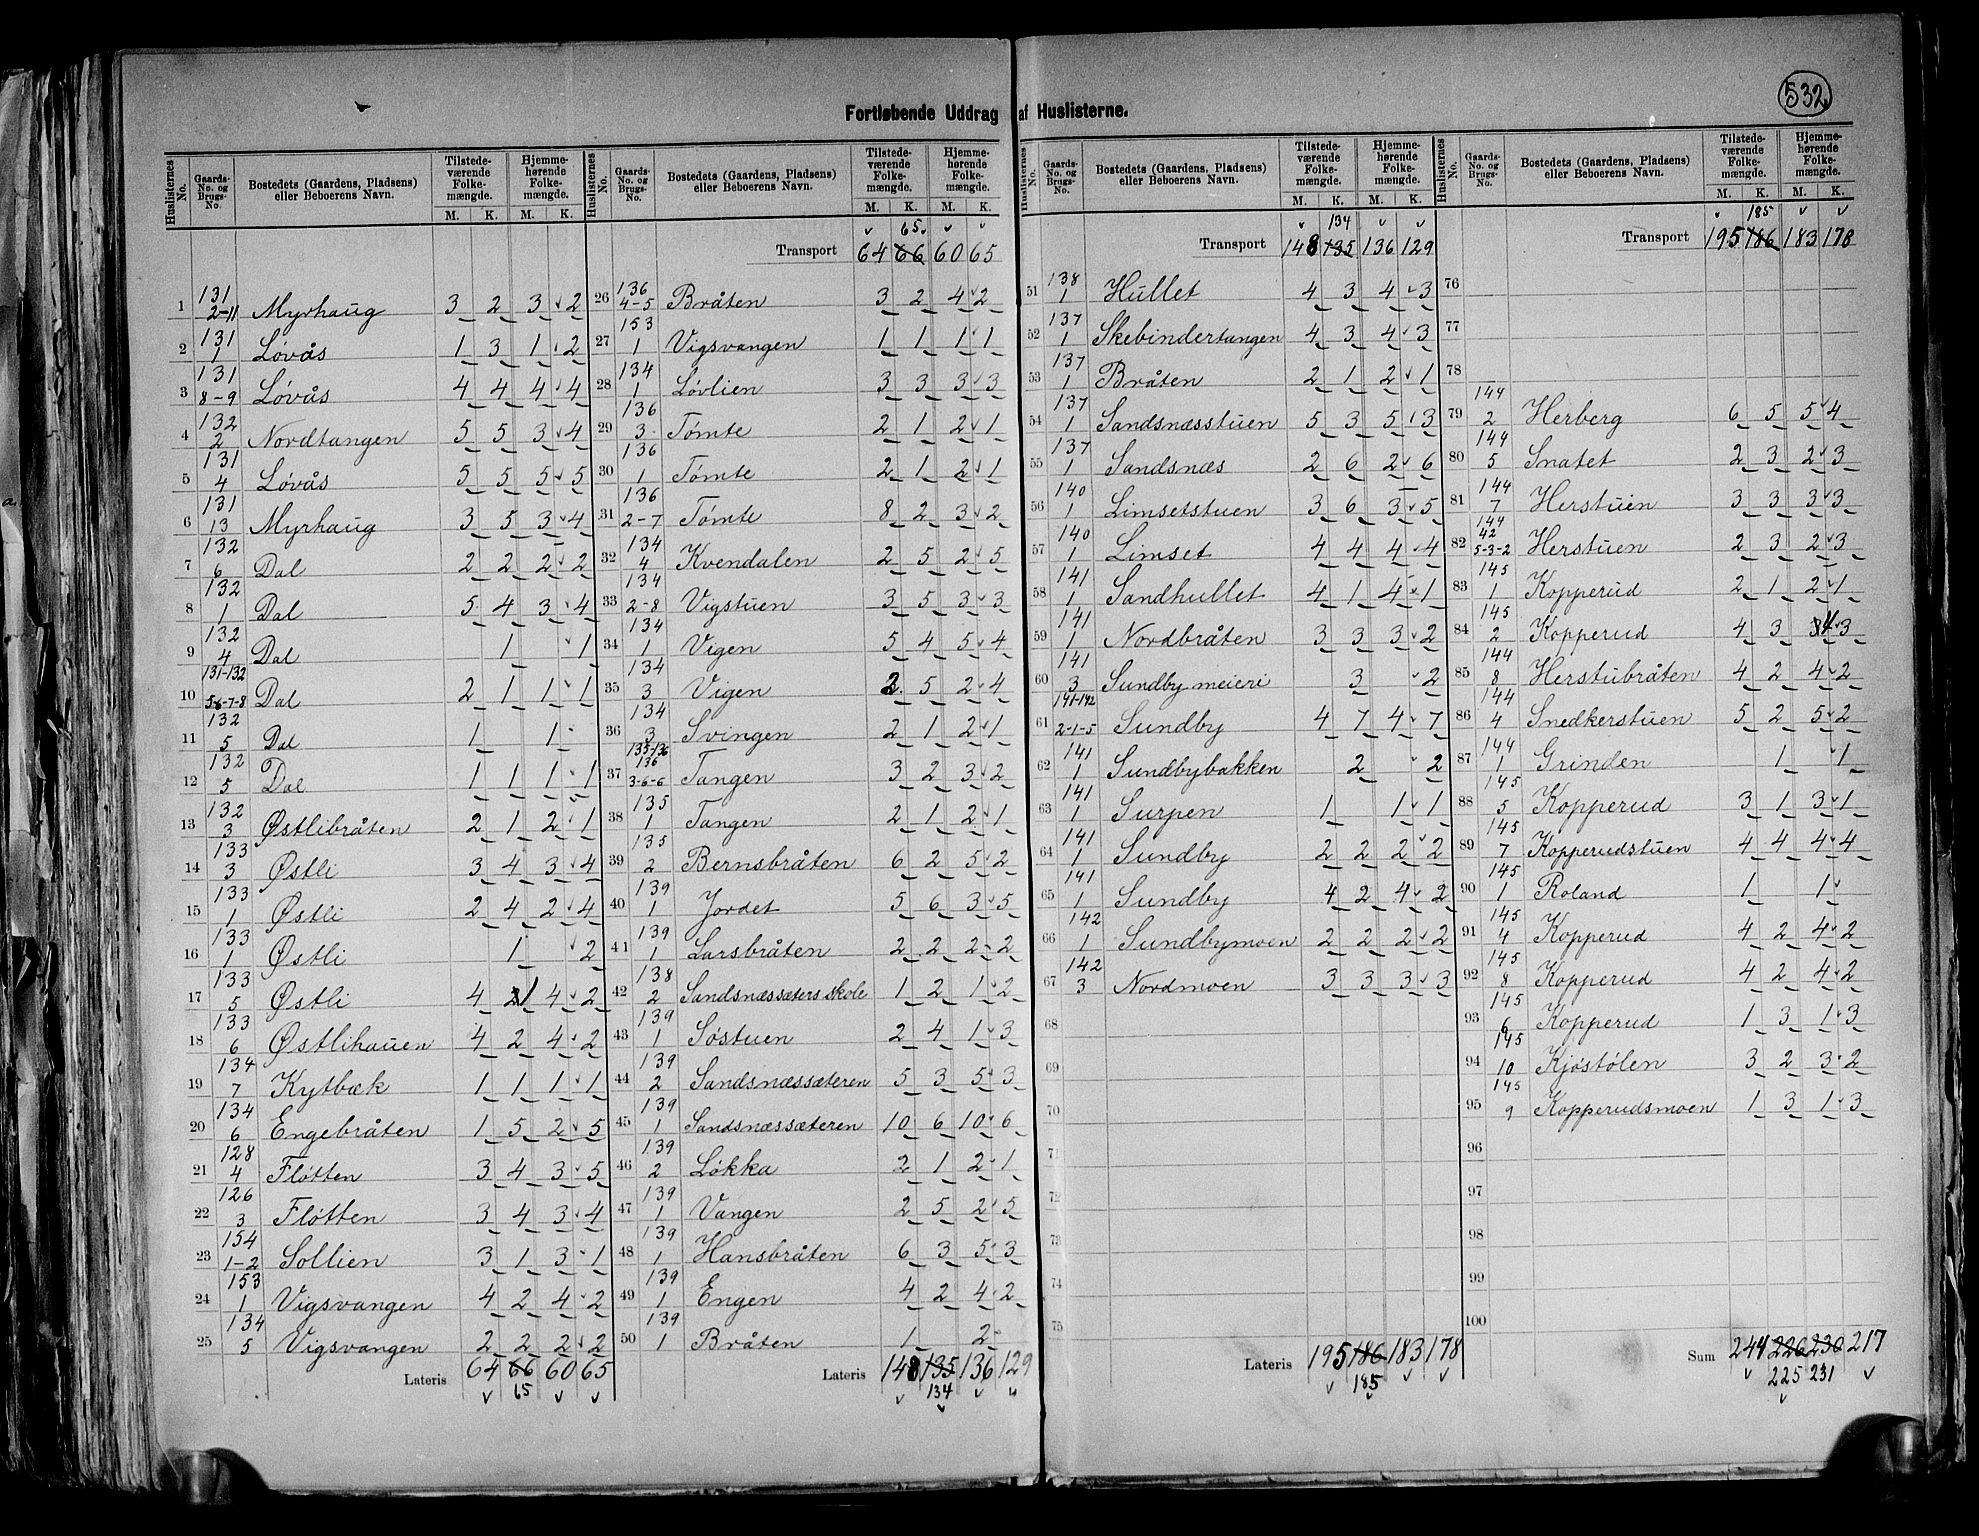 532
Fortløbende Uddrag af Huslisterne.
Huslisternes No. Gaards-No. og Brugs-No. Bostedets (Gaardens, Pladsens) eller Beboerens Navn. Tilstedeværende Folkemængde. M. K. Hjemmehørende Folkemængde. M. K.
1 131 2-11 Myrhaug 3 2 3 2
2 131 1 Løvås 1 3 1 2
3 131 8-9 Løvås 4 4 4 4
4 132 2 Nordtangen 5 5 3 4
5 131 4 Løvås 5 5 5 5
6 131 13 Myrhaug 3 5 3 4
7 132 6 Dal 2 2 2 2
8 132 1 Dal 5 4 3 4
9 132 4 Dal 1 1
10 131-132 5-6-7-8 Dal 2 1 1 1
11 132 5 Dal 1 1
12 132 5 Dal 1 1 1 1
13 132 3 Østlibråten 2 1 2 1
14 133 3 Østli 3 4 3 4
15 133 1 Østli 2 4 2 4
16 133 1 Østli 1 2
17 133 5 Østli 4 1 4 2
18 133 6 Østlihauen 4 2 4 2
19 134 7 Kytbæk 1 1 1 1
20 134 6 Engebråten 1 5 2 5
21 128 4 Fløtten 3 4 3 5
22 126 3 Fløtten 3 4 3 4
23 154 1-2 Sollien 3 1 3 1
24 153 1 Vigsvangen 4 2 4 2
25 134 5 Vigsvangen 2 2 2 2
Lateris 64 66 60 65
65
Huslisternes No. Gaards-No. og Brugs-No. Bostedets (Gaardens, Pladsens) eller Beboerens Navn. Tilstedeværende Folkemængde. M. K. Hjemmehørende Folkemængde. M. K.
65
Transport 64 66 60 65
26 136 4-5 Bråten 3 2 4 2
27 153 1 Vigsvangen 1 1 1 1
28 134 1 Løvlien 3 3 3 3
29 136 3 Tømte 2 1 2 1
30 136 1 Tømte 2 1 2 1
31 136 2-7 Tømte 8 2 3 2
32 134 4 Kvendalen 2 5 2 5
33 134 2-8 Vigstuen 3 5 3 3
34 134 1 Vigen 5 4 5 4
35 134 3 Vigen 2 5 2 4
36 134 3 Svingen 2 1 2 1
37 135-136 136 3-6-6 Tangen 3 2 3 2
38 135 1 Tangen 2 1 2 1
39 135 2 Bernsbråten 6 2 5 2
40 139 1 Jordet 5 6 3 5
41 139 1 Larsbråten 2 2 2 2
42 138 2 Sandsnæssæters skole 1 2 1 2
43 139 1 Søstuen 2 4 1 3
44 139 2 Sandsnæssæteren 5 3 5 3
45 139 1 Sandsnæssæteren 10 6 10 6
46 139 2 Løkka 2 1 2 1
47 139 1 Vangen 2 5 2 5
48 139 1 Hansbråten 6 3 5 3
49 139 1 Engen 4 2 4 2
50 139 1 Bråten 1 2
Lateris 148 135 136 129
134
Huslisternes No. Gaards-No. og Brugs-No. Bostedets (Gaardens, Pladsens) eller Beboerens Navn. Tilstedeværende Folkemængde. M. K. Hjemmehørende Folkemængde. M. K.
134
Transport 148 135 136 129
51 138 1 Hullet 4 3 4 3
52 137 1 Skebindertangen 4 3 4 3
53 137 1 Bråten 2 1 2 1
54 137 1 Sandsnæsstuen 5 3 5 3
55 137 1 Sandsnæs 2 6 2 6
56 140 1 Limsetstuen 3 6 3 5
57 140 1 Limset 4 4 4 4
58 141 1 Sandhullet 4 1 4 1
59 141 1 Nordbråten 3 3 3 2
60 141 3 Sundby meieri 3 2
61 141-142 2-1-5 Sundby 4 7 4 7
62 141 1 Sundbybakken 2 2
63 141 1 Surpen 1 1 1
64 141 1 Sundby 2 2 2 2
65 141 1 Sundby 4 2 4 2
66 142 1 Sundbymoen 2 2 2 2
67 142 3 Nordmoen 3 3 3 3
68
69
70
71
72
73
74
75
Lateris 195 186 183 178
185
Huslisternes No. Gaards-No. og Brugs-No. Bostedets (Gaardens, Pladsens) eller Beboerens Navn. Tilstedeværende Folkemængde. M. K. Hjemmehørende Folkemængde. M. K.
185
Transport 195 186 183 178
76
77
78
79 144 2 Herberg 6 5 5 4
80 144 5 Snatet 2 3 2 3
81 144 7 Herstuen 3 3 3 3
82 144 42 5-3-2 Herstuen 2 3 2 3
83 145 1 Kopperud 2 1 2 1
84 145 2 Kopperud 4 3 4 3
85 144 8 Herstubråten 4 2 4 2
86 144 4 Snedkerstuen 5 2 5 2
87 144 1 Grinden 1 1
88 145 5 Kopperud 3 1 3 1
89 145 7 Kopperudstuen 4 4 4 4
90 145 1 Roland 1 1
91 145 4 Kopperud 4 2 4 2
92 145 8 Kopperud 4 2 4 2
93 145 6 Kopperud 1 3 1 3
94 145 10 Kjøstølen 3 2 3 2
95 145 9 Kopperudsmoen 1 3 1 3
96
97
98
99
100
Sum 244 226 230 217
225 231